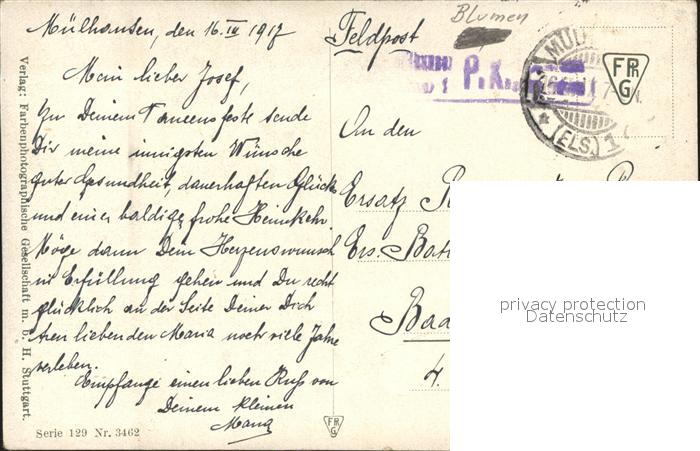 Blumen
Mülhausen, den 16.IV 1917
Feldpost
P.K.
MÜL
(ELS.) 1
FPhG
Mein lieber Josef,
Zu Deinem Namensfeste sende
Dir meine innigsten Wünsche
guter Gesundheit, dauerhaften Glücks
und eine baldige, frohe Heimkehr.
Möge dann Dein Herzenswunsch
in Erfüllung gehen und Du recht
glücklich an der Seite Deiner Dich
treu liebenden Maria noch viele Jahre
verleben.
Empfange einen lieben Kuss von
Deinem kleinen
Maria
An den
Ersatz
Ers. Bat
Bad
4.
Verlag: Farbenphotographische Gesellschaft m. b. H. Stuttgart.
Serie 129 Nr. 3462
FPhG
privacy protection
Datenschutz